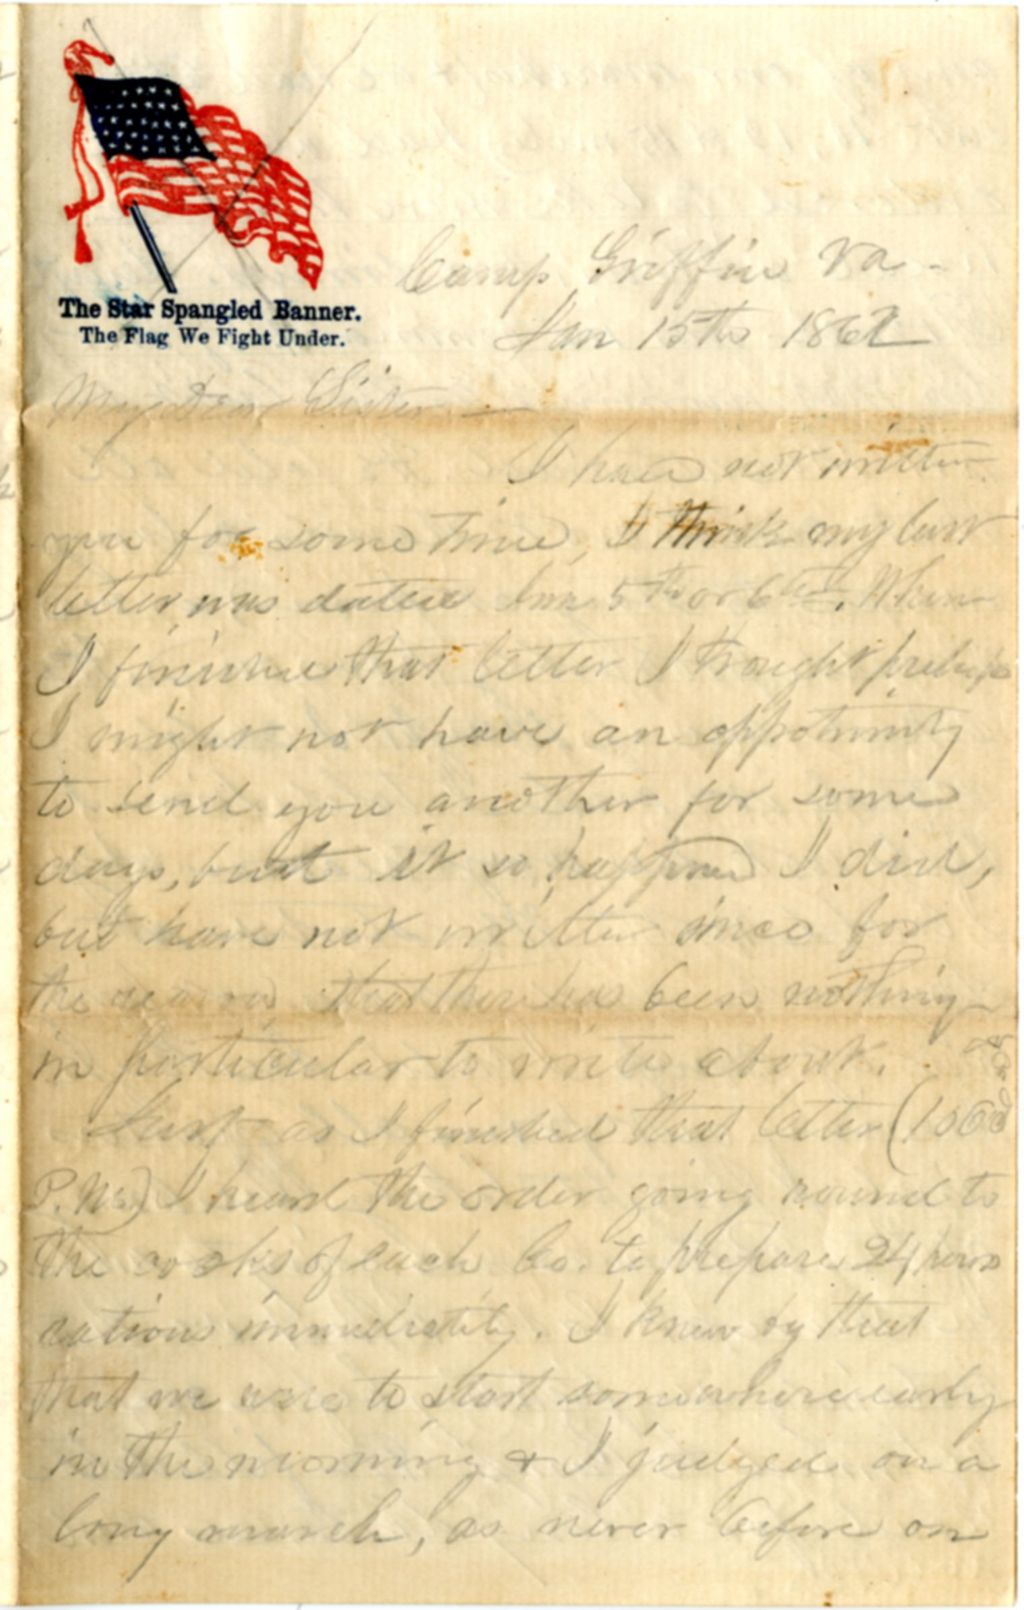 The Star Spangled Banner.
The Flag We Fight Under.
Camp Griffin Va -
Jan 15th 1862
My Dear Sister —
I have not written
you for some time, I think my last
letter was dated Jan 5th or 6th. When
I finished that letter I thought
I might not have an oppotunity
to send you another for some
days, but it so happened I did,
but have not written since for
the reason that there has been nothing
in particular to write about.
Just as I finished that letter
P.M.) I heard the order going round to
the cooks of each Co. to prepare 24 hours
rations immediately. I knew by that
that we were to start somewhere early
in the morning & I judged on a
long march, as never before on